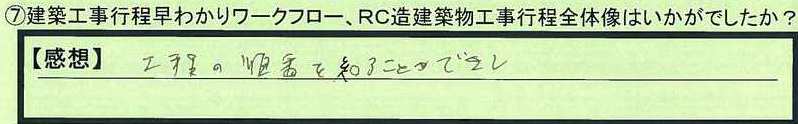 ⑦建築工事行程早わかりワークフロー、RC造建築物工事行程全体像はいかがでしたか?
【感想】 工程の順番を知ることができし